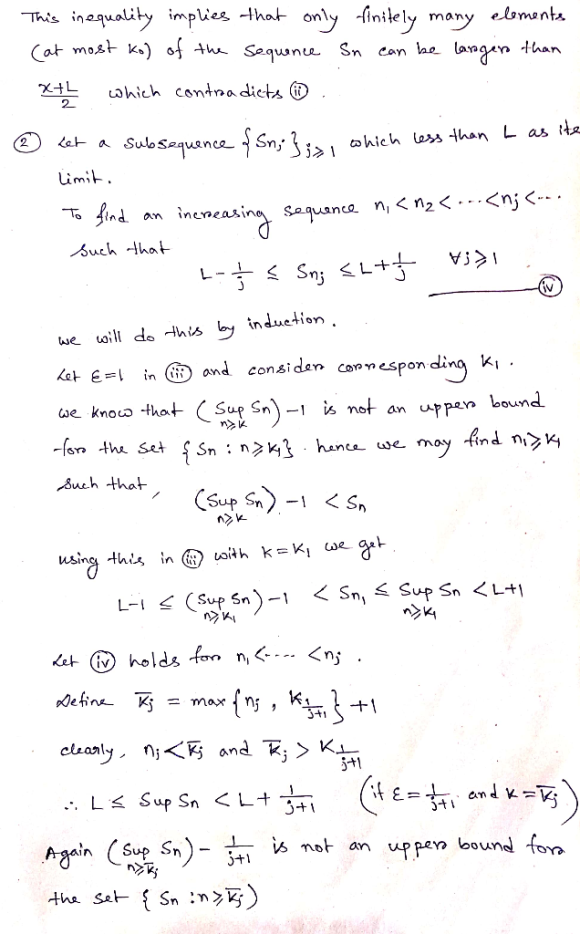 This inequality implies that only finitely many elements
(at most K₀) of the sequence Sn can be larger than
(x+L)/2 which contradicts (ii).
(2) Let a subsequence {S_{n_j}}_{j≥1} which less than L as its
limit.
To find an increasing sequence n₁ < n₂ < ··· < n_j < ---
such that
L - 1/j ≤ S_{n_j} ≤ L + 1/j ∀ j ≥ 1
(iv)
we will do this by induction.
Let ε=1 in (iii) and consider corresponding K₁.
we know that (Sup_{n≥K} Sn) -1 is not an upper bound
for the set {Sn : n ≥ K₁}. hence we may find n₁ ≥ K₁
such that,
(Sup_{n≥K} Sn) -1 < Sn
using this in (iii) with K = K₁ we get
L-1 ≤ (Sup_{n≥K₁} Sn) -1 < S_{n₁} ≤ Sup_{n≥K₁} Sn < L+1
Let (iv) holds for n₁ < ---- < n_j.
Define K̅_j = max {n_j, K_{1/(j+1)}} +1
clearly, n_j < K̅_j and K̅_j > K_{1/(j+1)}
∴ L ≤ Sup Sn < L + 1/(j+1) (if ε = 1/(j+1) and K = K̅_j)
Again (Sup_{n≥K̅_j} Sn) - 1/(j+1) is not an upper bound for
the set {Sn : n ≥ K̅_j)